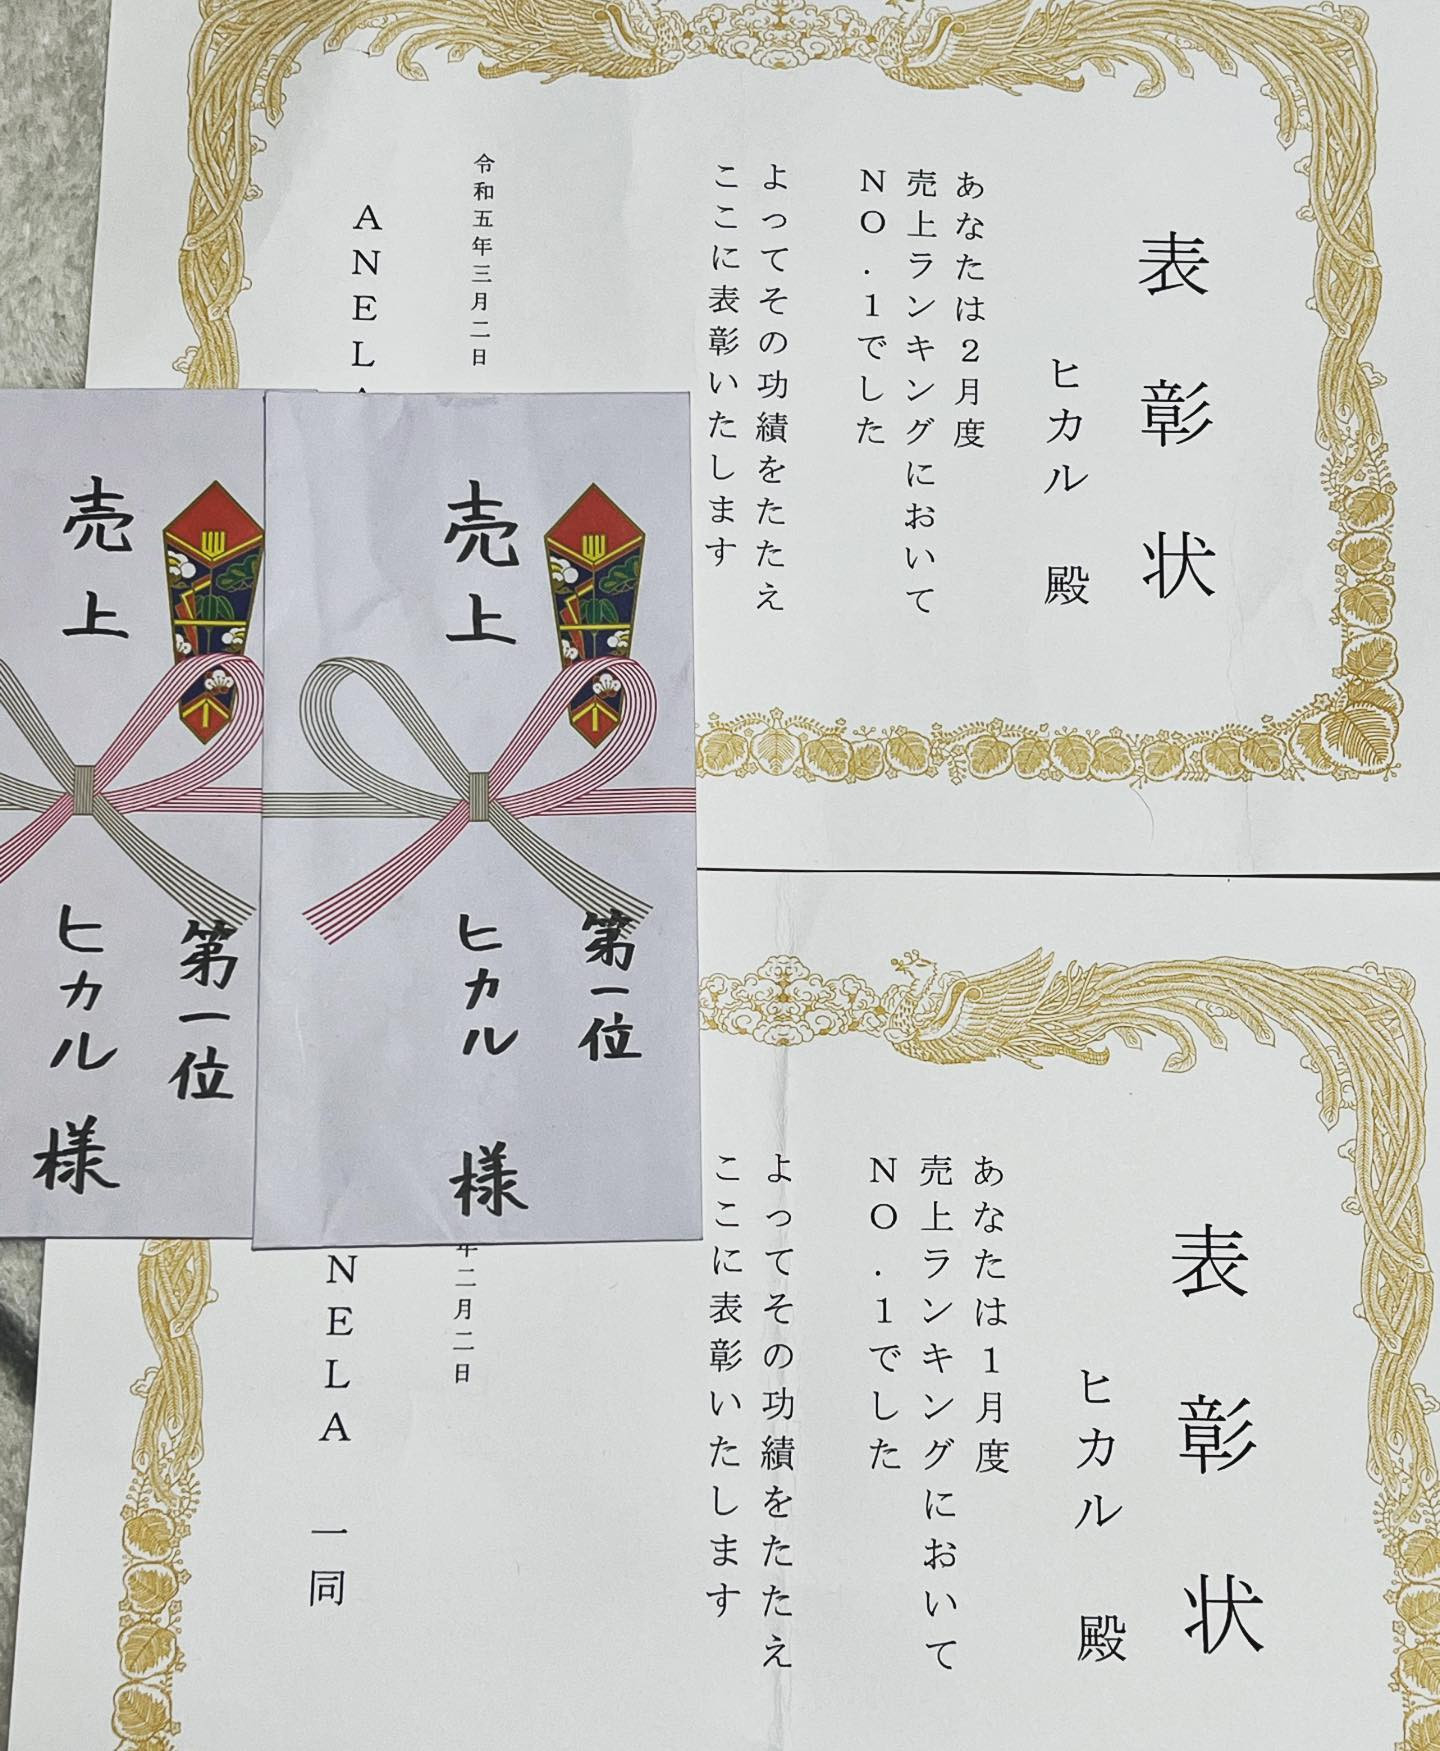 表彰状
ヒカル 殿
あなたは2月度
売上ランキングにおいて
NO.1でした
よってその功績をたたえ
ここに表彰いたします
令和五年三月二日
ANELA
売上
第一位
ヒカル 様
売上
第一位
ヒカル 様
表彰状
ヒカル 殿
あなたは1月度
売上ランキングにおいて
NO.1でした
よってその功績をたたえ
ここに表彰いたします
年二月二日
NELA 一同